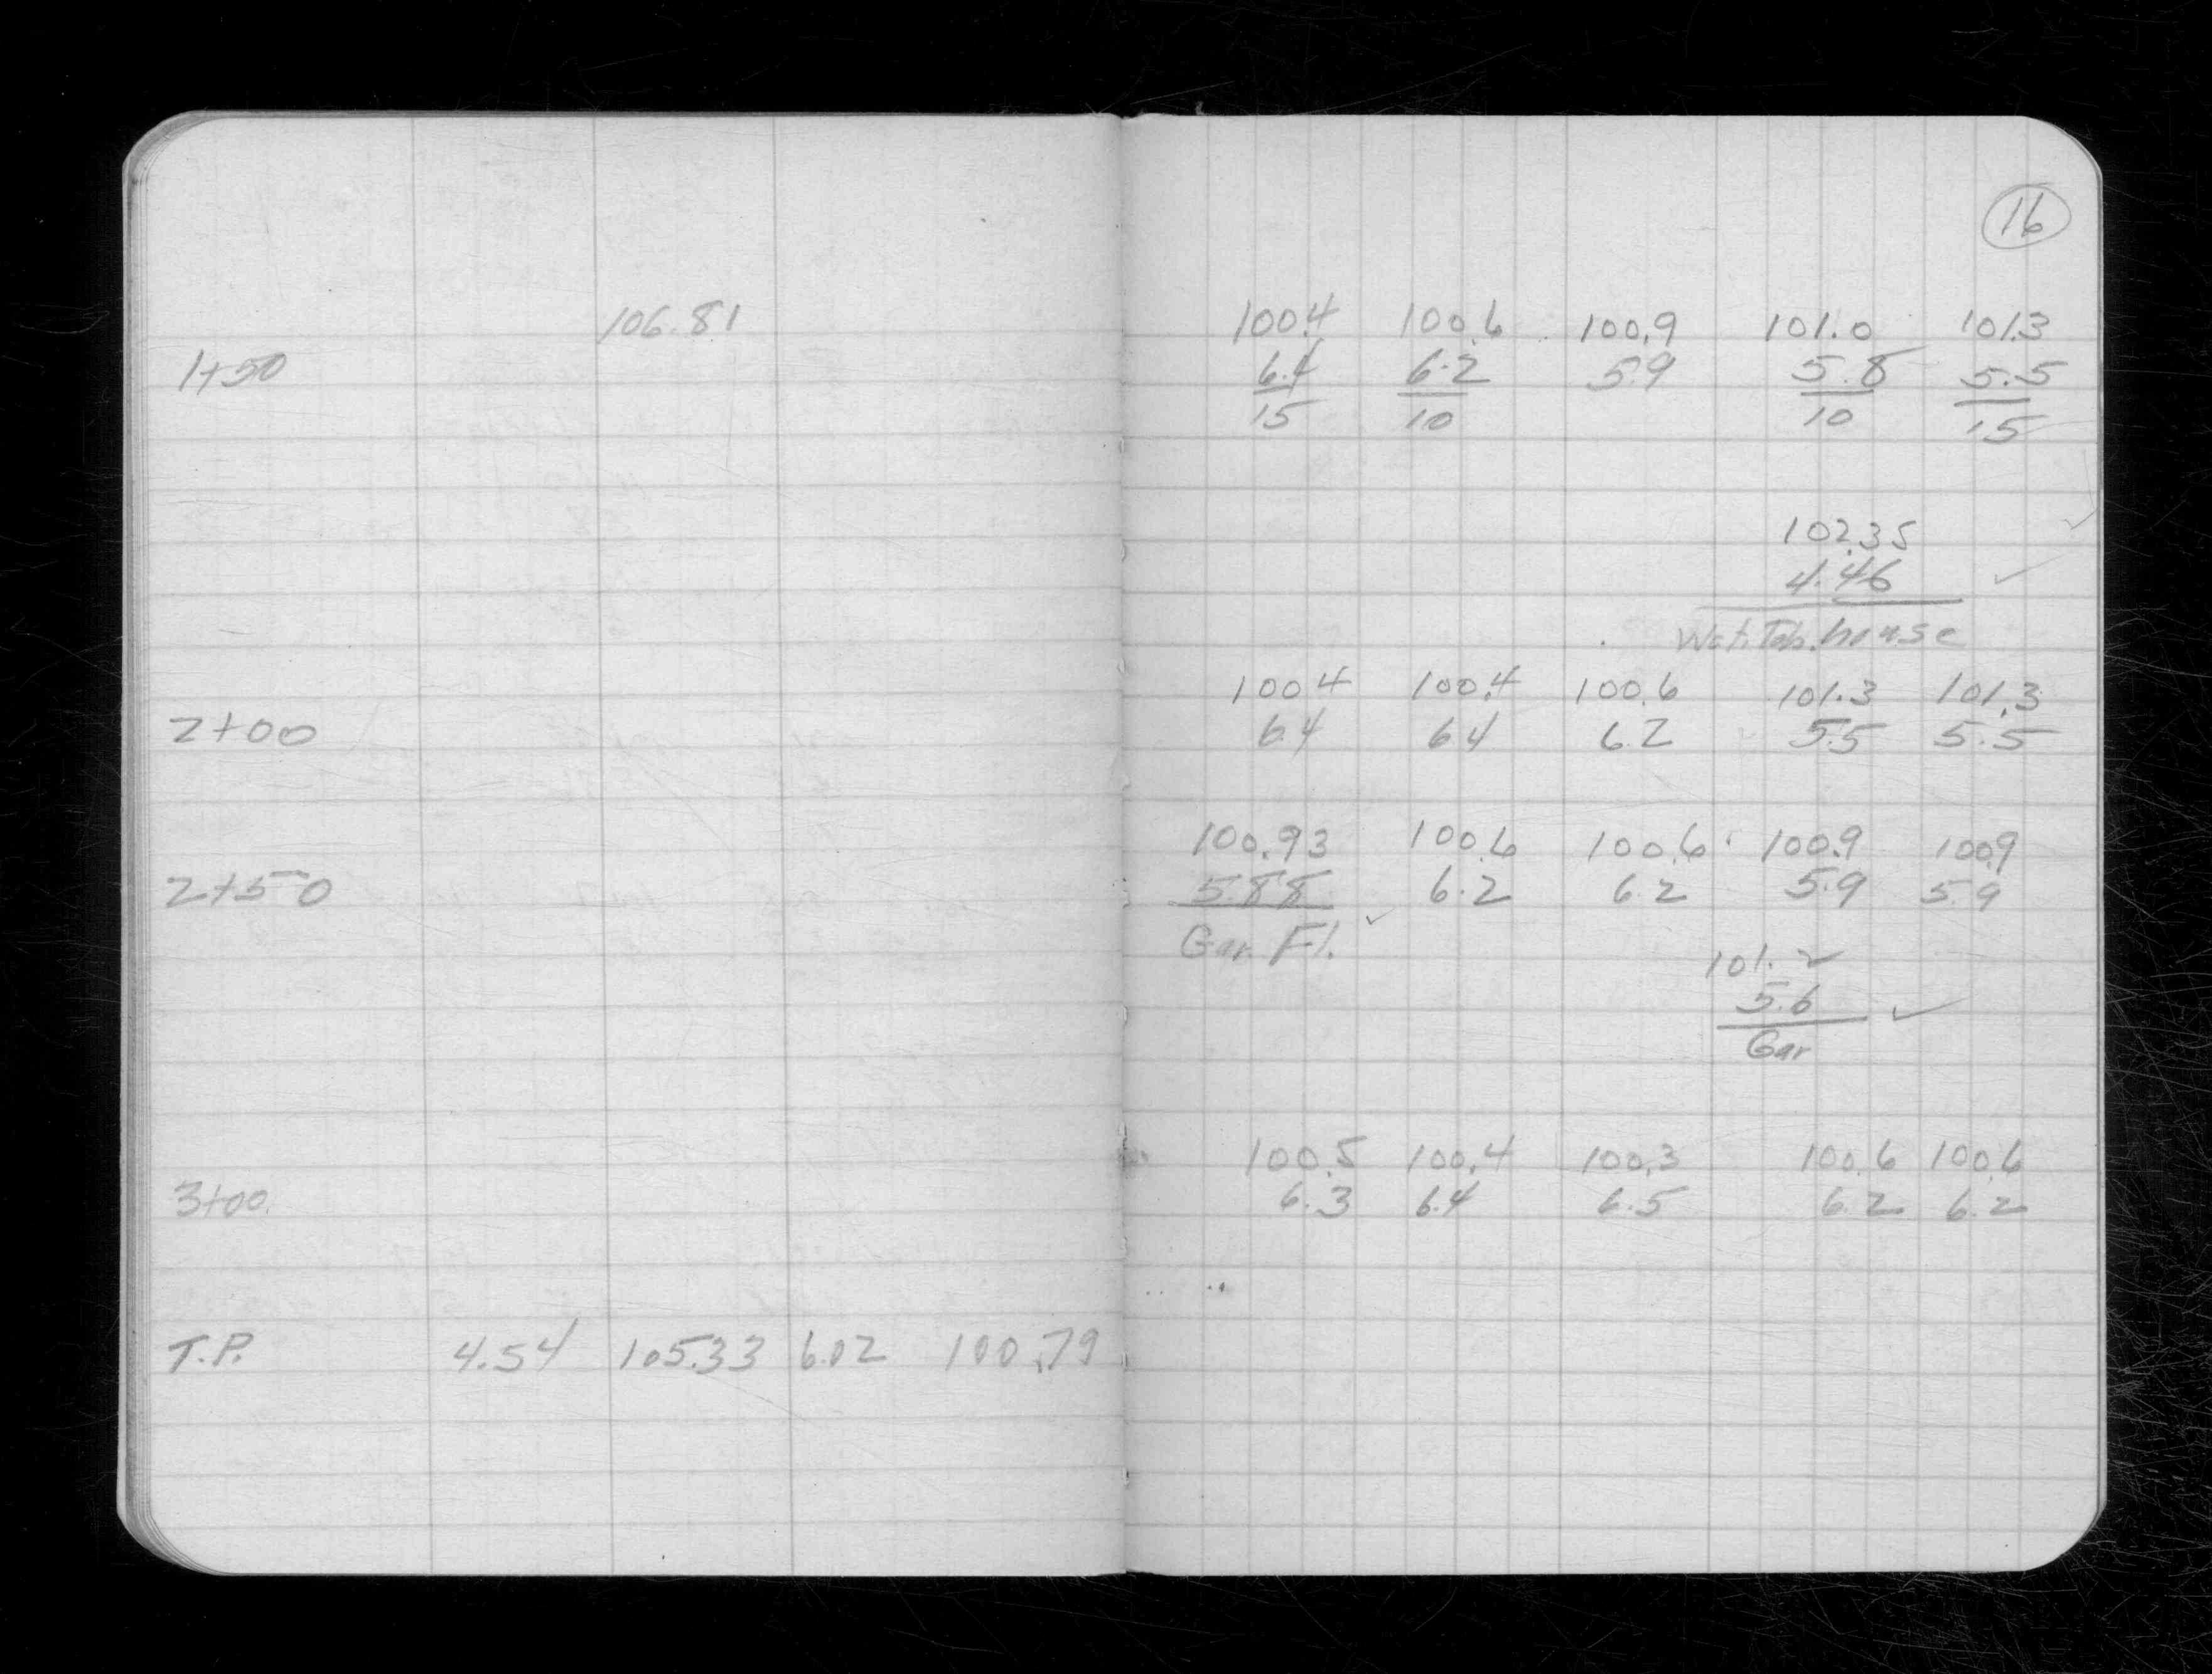 16
106.81 100.4 100.6 100.9 101.0 101.3
1+50 6.4 6.2 5.9 5.8 5.5
15 10 10 15
102.35
4.46
Wat. Tab. house
100.4 100.4 100.6 101.3 101.3
2+00 6.4 6.4 6.2 5.5 5.5
100.93 100.6 100.6 100.9 100.9
2+50 5.88 6.2 6.2 5.9 5.9
Gar. Fl.
101.2
5.6
Gar
100.5 100.4 100.3 100.6 100.6
3+00 6.3 6.4 6.5 6.2 6.2
T.P. 4.54 105.33 6.02 100.79